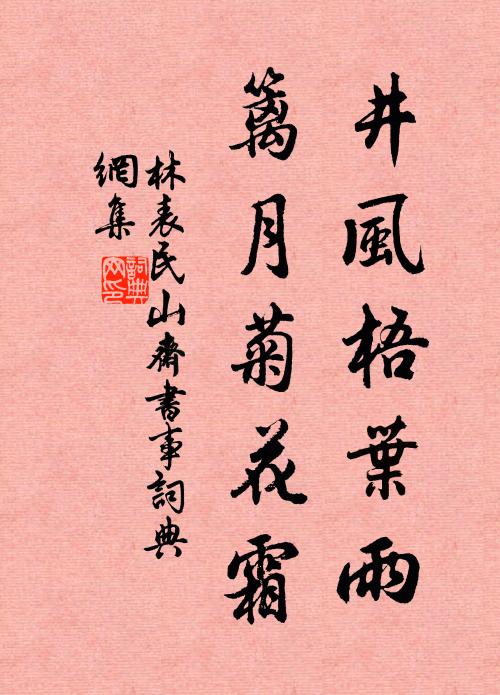 井風梧葉雨
籬月菊花霜
林表民山齋書事詞典
網集
詞典網印